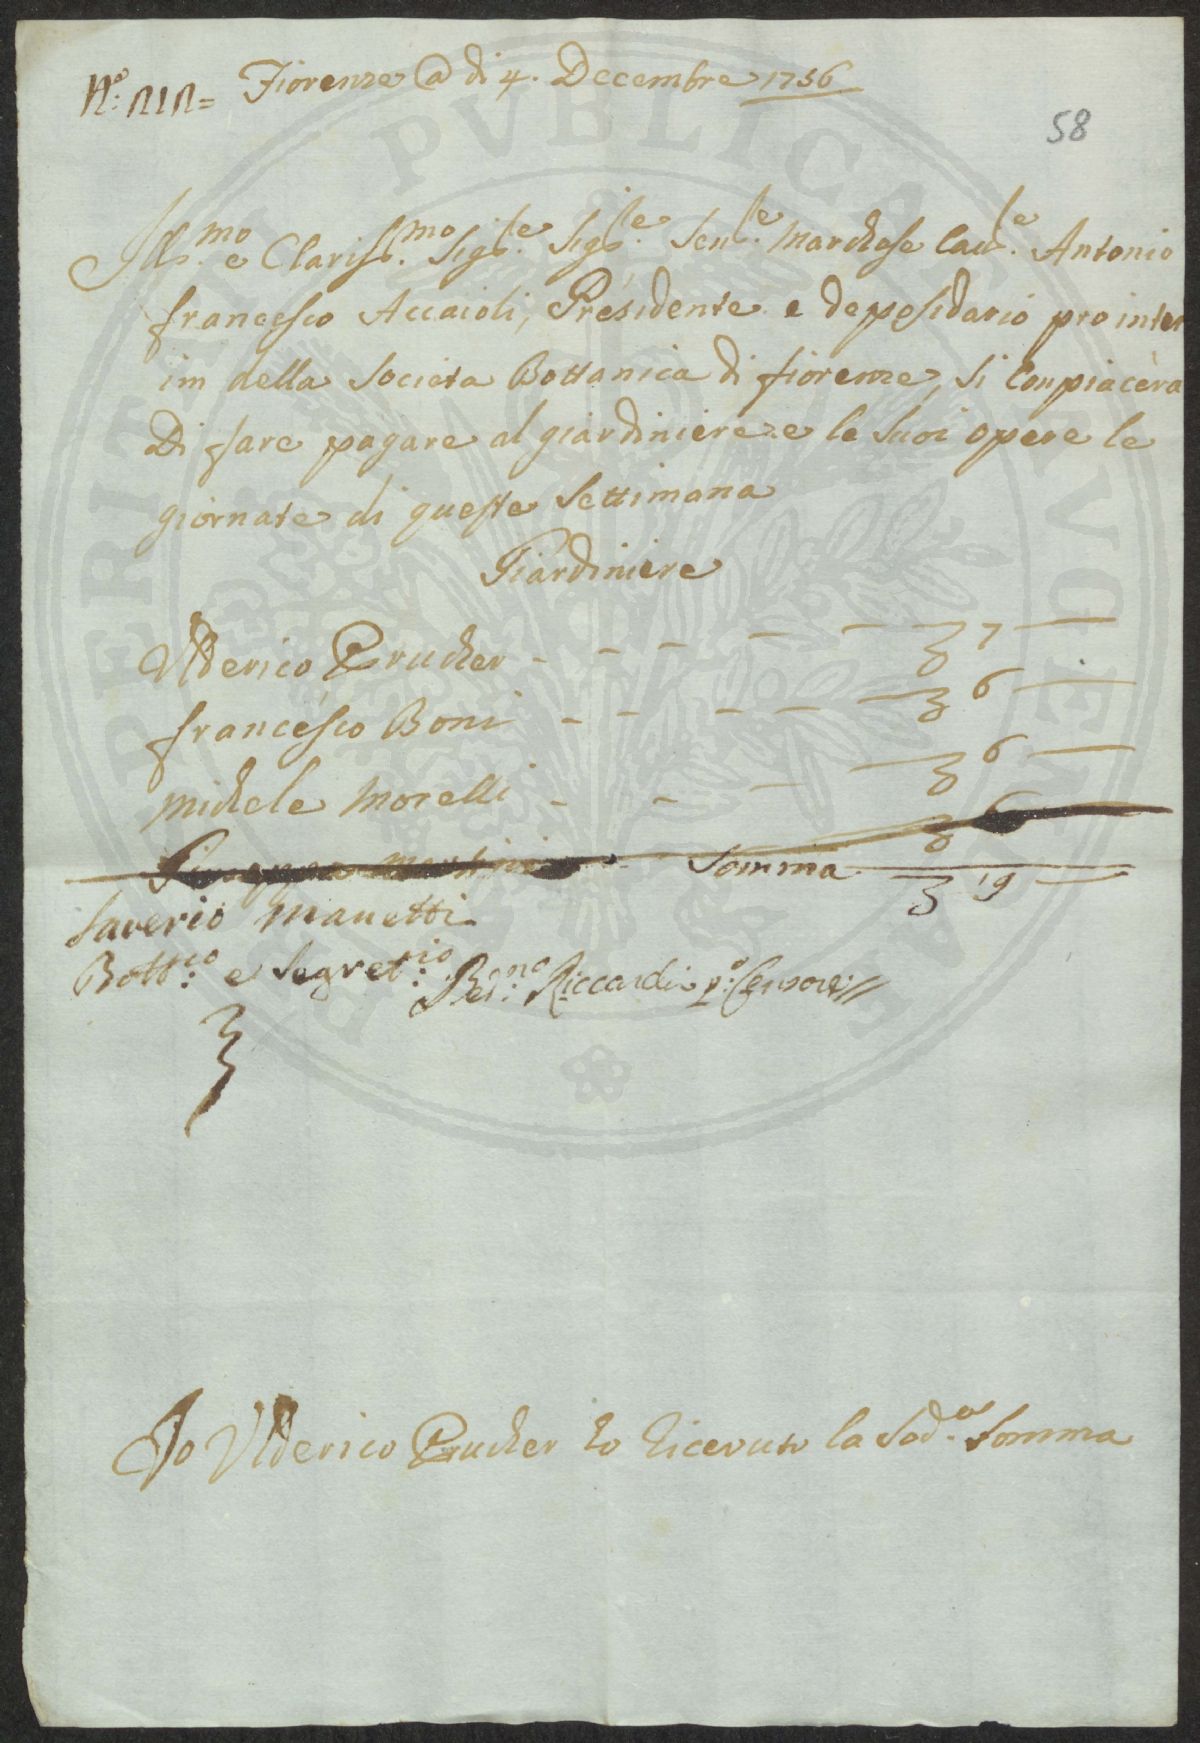 Fiorenze @ di 4. Decembre 1756
N.º
58
Ills.mo e Clariss.mo Sig.re Sig.re Sen.re Marchese Cav.re Antonio
francesco Accaioli, Presidente e deposidario pro inter
im della Societa Bottanica di fiorenze, Si Conpiacèra
Di fare pagare al giardiniere e le Suoi opere le
giornate di queste Settimana
Giardiniere
Ulderico Prucher - - - - - 7 -
francesco Boni - - - - - 6 -
Michele Morelli - - - - 6 -
Giuseppe Martini 6
Somma 19 -
Saverio Manetti
Bott.co e Segret.rio Ber.no Riccardi p.º Censore//
Jo Ulderico Prucher ho Riceuuto la Sod.a Somma
PVBLICAE AVGENDAE PERITATI